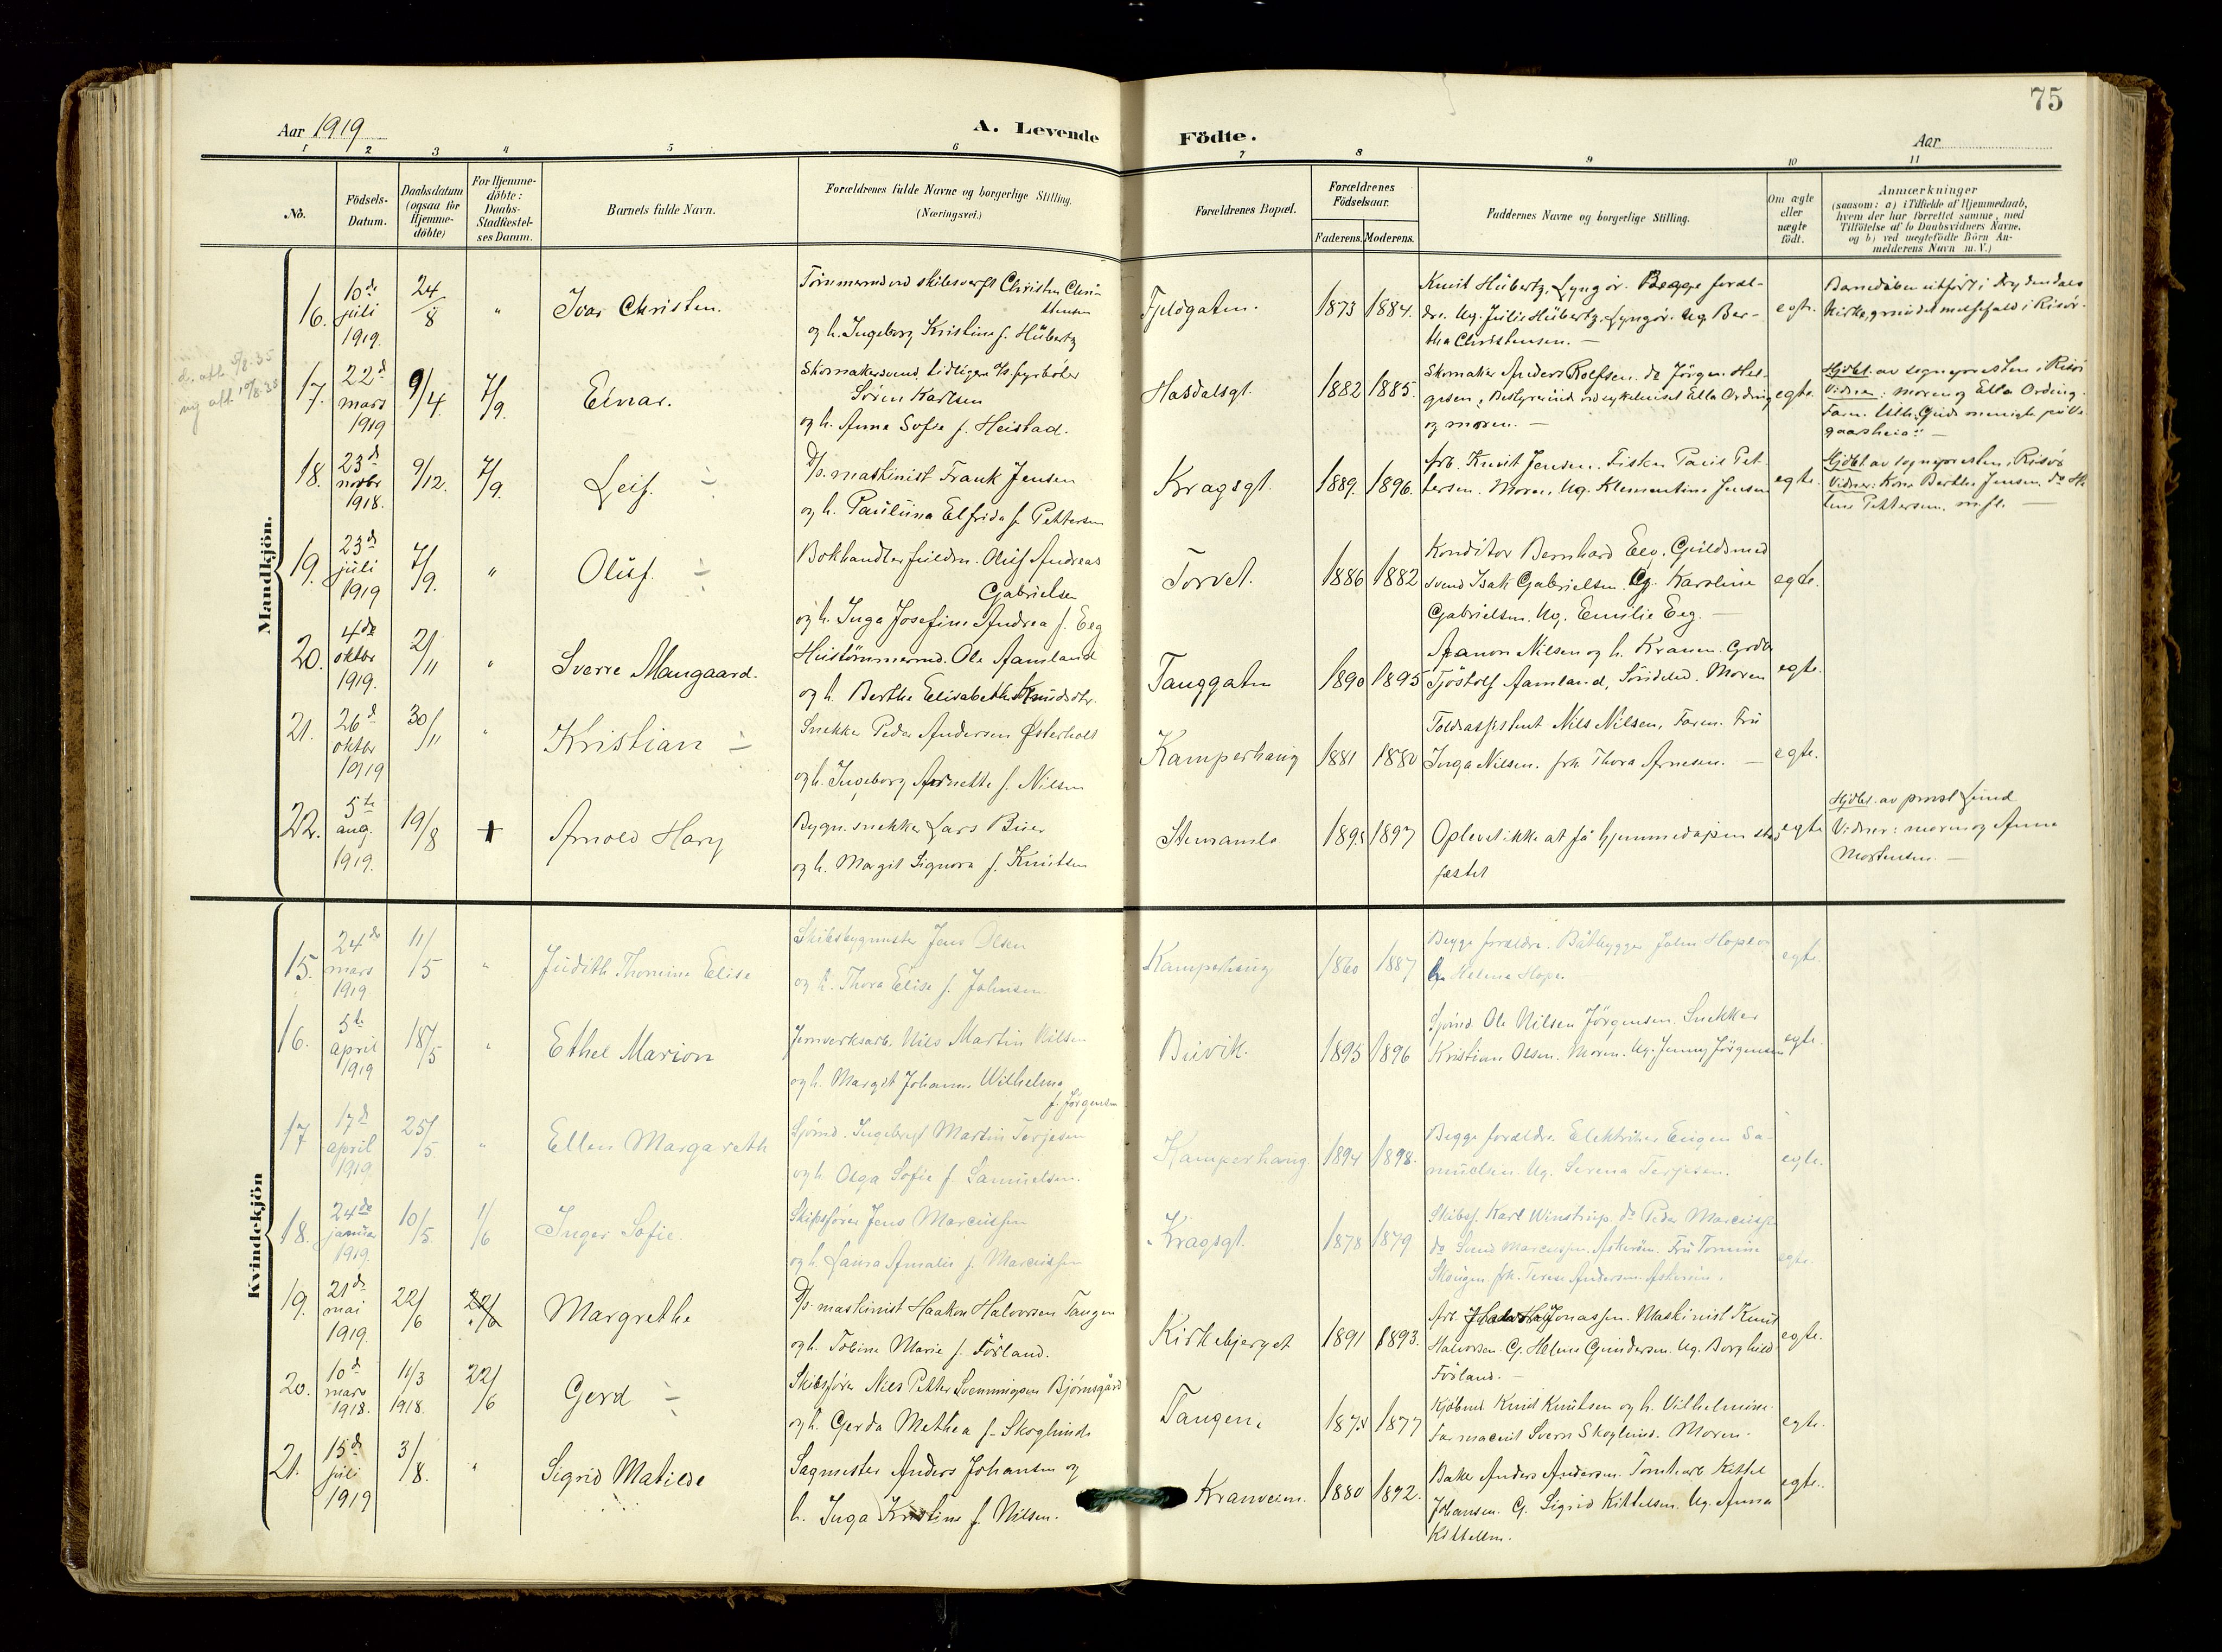 75
Aar 1919
A. Levende
Födte.
Aar
1 2 3 4 5 6 7 8 9 10 11
No.
Födsels-
Datum.
Daabsdatum
(ogsaa for
Hjemme-
döbte)
For Hjemme-
döbte:
Daabs-
Stadfæstel-
ses Datum.
Barnets fulde Navn.
Forældrenes fulde Navne og borgerlige Stilling.
(Næringsvei.)
Forældrenes Bopæl.
Forældrenes
Födselsaar.
Faderens. Moderens.
Faddernes Navne og borgerlige Stilling.
Om ægte
eller
uægte
födt.
Anmærkninger
(saasom: a) i Tilfælde af Hjemmedaab,
hvem der har forrettet samme, med
Tilföielse af to Daabsvidners Navne.
og b) ved uegtefödte Börn An-
melderens Navn m. V.)
Mandkjön.
16. 10de juli 1919. 24/8 " Ivar Christen.
Tømmermand skibsverft Christen Chri-
stensen
og h. Ingeborg Kristine f. Hübertz
Fjeldgaten. 1873 1884.
Knut Hübertz, Lyngör. Begge foræl-
dre. Ug. Julie Hübertz, Lyngör. Ug. Ber-
tha Christensen. —
egte.
Barnedåben utført i
kirke, i Risör.
d. att. 5/8-35
ny att. 10/8-35
17. 22d mars 1919 9/4. 7/9. Einar.
Skomakersvend, tidligere fyrböter
Søren Karlsen
og h. Anna Sofie f. Heistad.
Hasdalsgt. 1882 1885.
Skomaker Anders Rolfsen. do Jörgen Hel-
gesen, Bestyrerinde Ella Ording
og moren. —
egte.
Hjdbt. av sognepresten i Risör
Vidner: moren og Ella Ording.
18. 23d novbr 1918. 9/12. 7/9. Leif.
D/s. maskinist Frank Jensen
og h. Pauline Elfrida f. Pettersen
Kragsgt. 1889. 1896.
Arb. Knut Jensen. Fisker Paul Pet-
tersen. Moren, Ug. Klementine Jensen
egte.
Hjdbt av sognepresten i Risör
Vidner: Kone Berthe Jensen, do
Pettersen, m.fl. —
19. 23d juli 1919 7/9. " Oluf.
Bokhandlerfuldm. Oluf Andreas
Gabrielsen
og h. Inga Josefine Andrea f. Eeg
Torvet. 1886 1882
Konditor Bernhard Eeg, Guldsmed
svend Isak Gabrielsen. G. Karoline
Gabrielsen. Ug. Emilie Eeg. —
egte.
20. 4de oktbr 1919. 2/11 " Sverre Maugaard.
Hustömmermd. Ole Aamland
og h. Berthe Elisabeth Knudsdtr.
Tanggaten 1890 1895
Aanon Nilsen og h. Kranen. Grdbr
Tjöstolf Aamland, Söndeled. Moren
egte.
21. 26d oktbr 1919 30/11 " Kristian
Snekker Peder Andersen Østerholt
og h. Ingeborg Arnette f. Nilsen
Kamperhaug 1881 1880
Toldassistent Nils Nilsen, Faren. Fru
Inga Nilsen. frk. Thora Arnesen. —
egte.
22. 5te aug. 1919. 19/8 + Arnold Hary
Bygn. snekker Lars Buer
og h. Margit Signora f. Knutsen
Stenramla 1895 1897
Oplevet ikke at få hjemmedåpen stad-
fæstet
egte
Hjdbt. av prost Lund
Vidner: moren og Anna
Mortensen. —
Kvindekjön
15. 24de mars 1919 11/5 " Judith Thomine Elise
Skibsbygmester Jens Olsen
og h. Thora Elise f. Johnsen.
Kamperhaug 1860 1887
Begge forældre. Båtbygger John Hope og
h. Helene Hope.
egte.
16. 5te april 1919 18/5 " Ethel Marion
Jernverksarb. Nils Martin Nilsen
og h. Margit Johanne Wilhelmine
f. Jörgensen
Buvik. 1895 1896
Sjömd. Ole Nilsen Jörgensen. Snekker
Kristian Olsen. Moren. Ug. Jenny Jörgensen
egte.
17 17d april 1919. 25/5. " Ellen Margareth
Sjömd. Ingebregt Martin Terjesen
og h. Olga Sofie f. Samuelsen.
Kamperhaug 1894 1898.
Begge forældre. Elektriker Eugen Sa-
muelsen. Ug. Serena Terjesen.
egte.
18. 24de januar 1919. 10/5. 1/6 Inger Sofie.
Skipsförer Jens Marcussen
og h. Laura Amalie f. Marcussen
Kragsgt. 1878 1879
Skibsf. Karl Winstrup. do Peder Marcussen
do Svend Marcussen. Askerön. Fru Tomine
Skougen frk. Terese Andersen. Askerön.
egte.
19. 21de mai 1919. 22/6 22/6 Margrethe
D/s. maskinist Haakon Halvorsen Tangen
og h. Tobine Marie f. Förland.
Kirkebjerget 1891 1893.
Arb. Jonassen. Maskinist Knut
Halvorsen. G. Helene Gundersen. Ug. Borghild
Förland. —
egte.
20. 10d mars 1918. 11/3 1918. 22/6 Gerd
Skibsförer Nils Petter Svenningsen Bjørnsgård
og h. Gerda Methea f. Skoglund
Tangen. 1875 1877
Kjöbmd. Knut Knutsen og h. Vilhelmine.
Farmaceut Sverre Skoglund. Moren.
egte.
21. 15d juli 1919 3/8. " Sigrid Matilde
Sagmester Anders Johansen og
h. Inga Kristine f. Nilsen.
Kranveien. 1880 1892.
Baker Anders Andersen. Tomtearb Kittel
Johansen. G. Sigrid Kittelsen. Ug. Anna
Kittelsen.
egte.